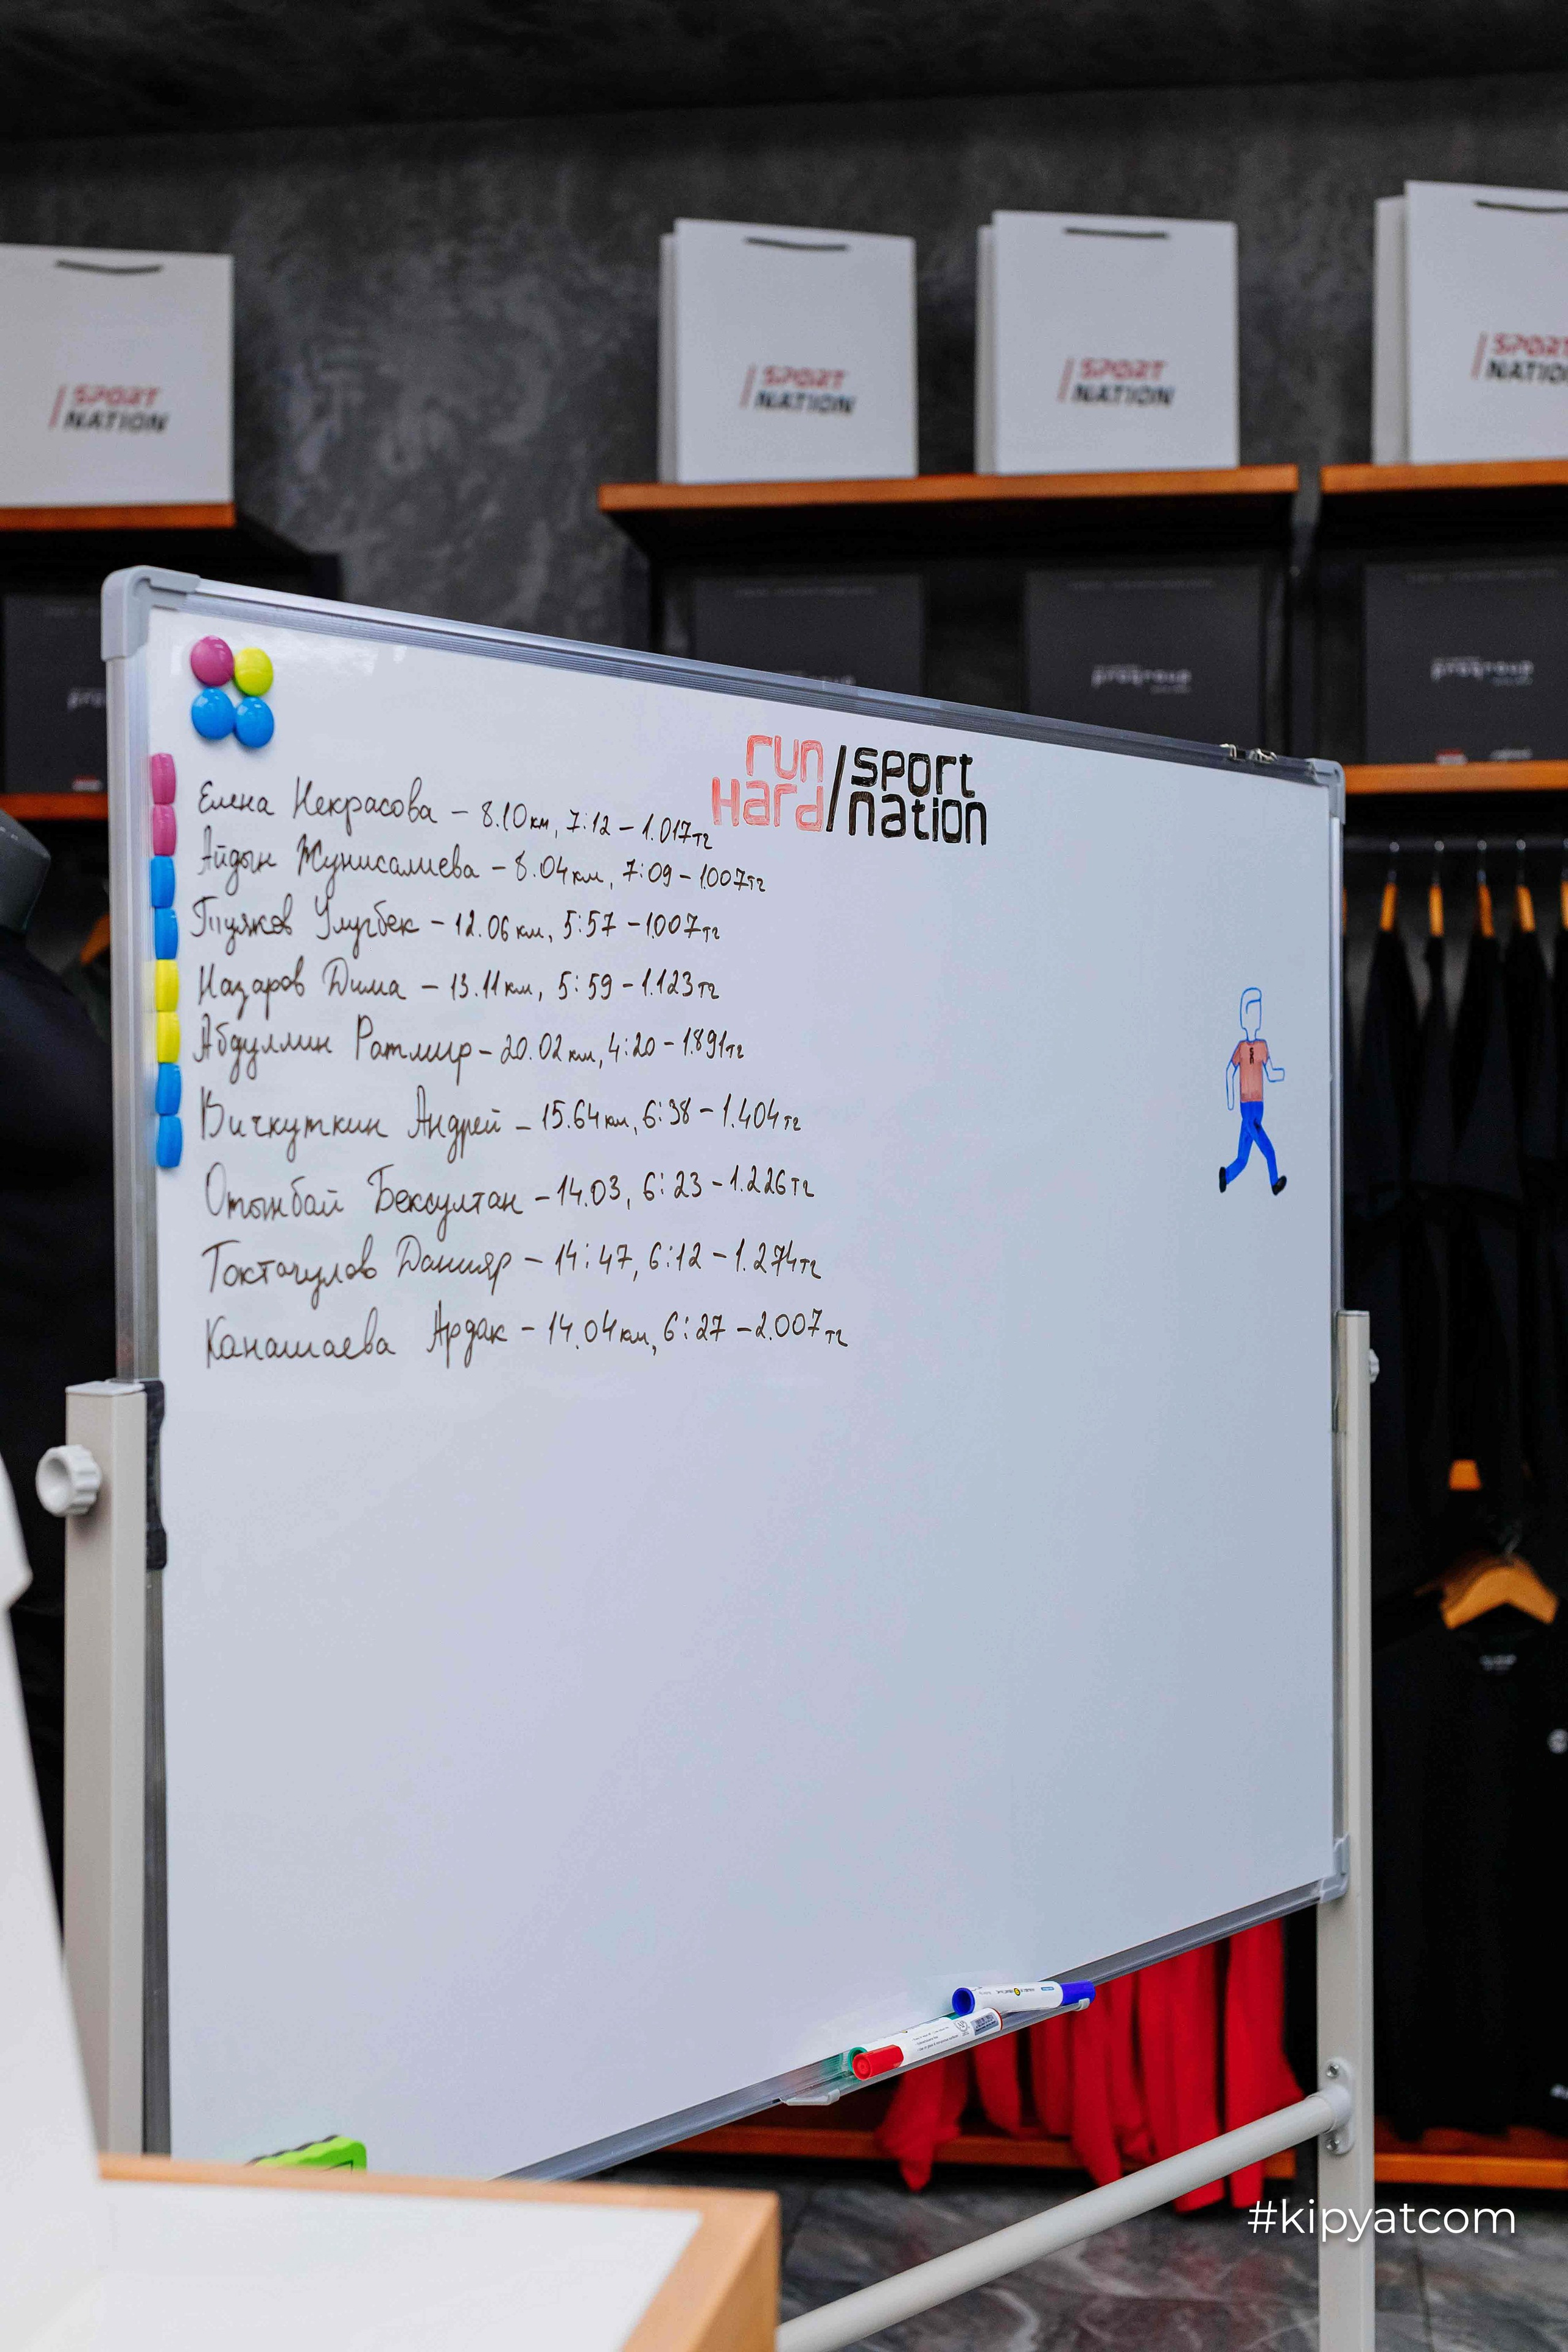 SPORT
NATION
SPORT
NATION
SPORT
NATION
SPORT
NATIO
progroup
progroup
run
Hard/sport
nation
Елена Некрасова – 8.10км, 7:12 – 1.017тг
Айдын Жунисалиева – 8.04км, 7:09 – 1007тг
Улугбек – 12.06 км, 5:57 – 1007тг
Назаров Дима – 13.11км, 5:59 – 1.123тг
Абдуллин Ратмир – 20.02 км, 4:20 – 1.891тг
Вичкуткин Андрей – 15.64 км, 6:38 – 1.404тг
Отынбай Бексултан – 14.03, 6:23 – 1.226тг
Токтагулов Данияр – 14:47, 6:12 – 1.274тг
Канашаева Ардак – 14.04км, 6:27 – 2.007тг
#kipyatcom